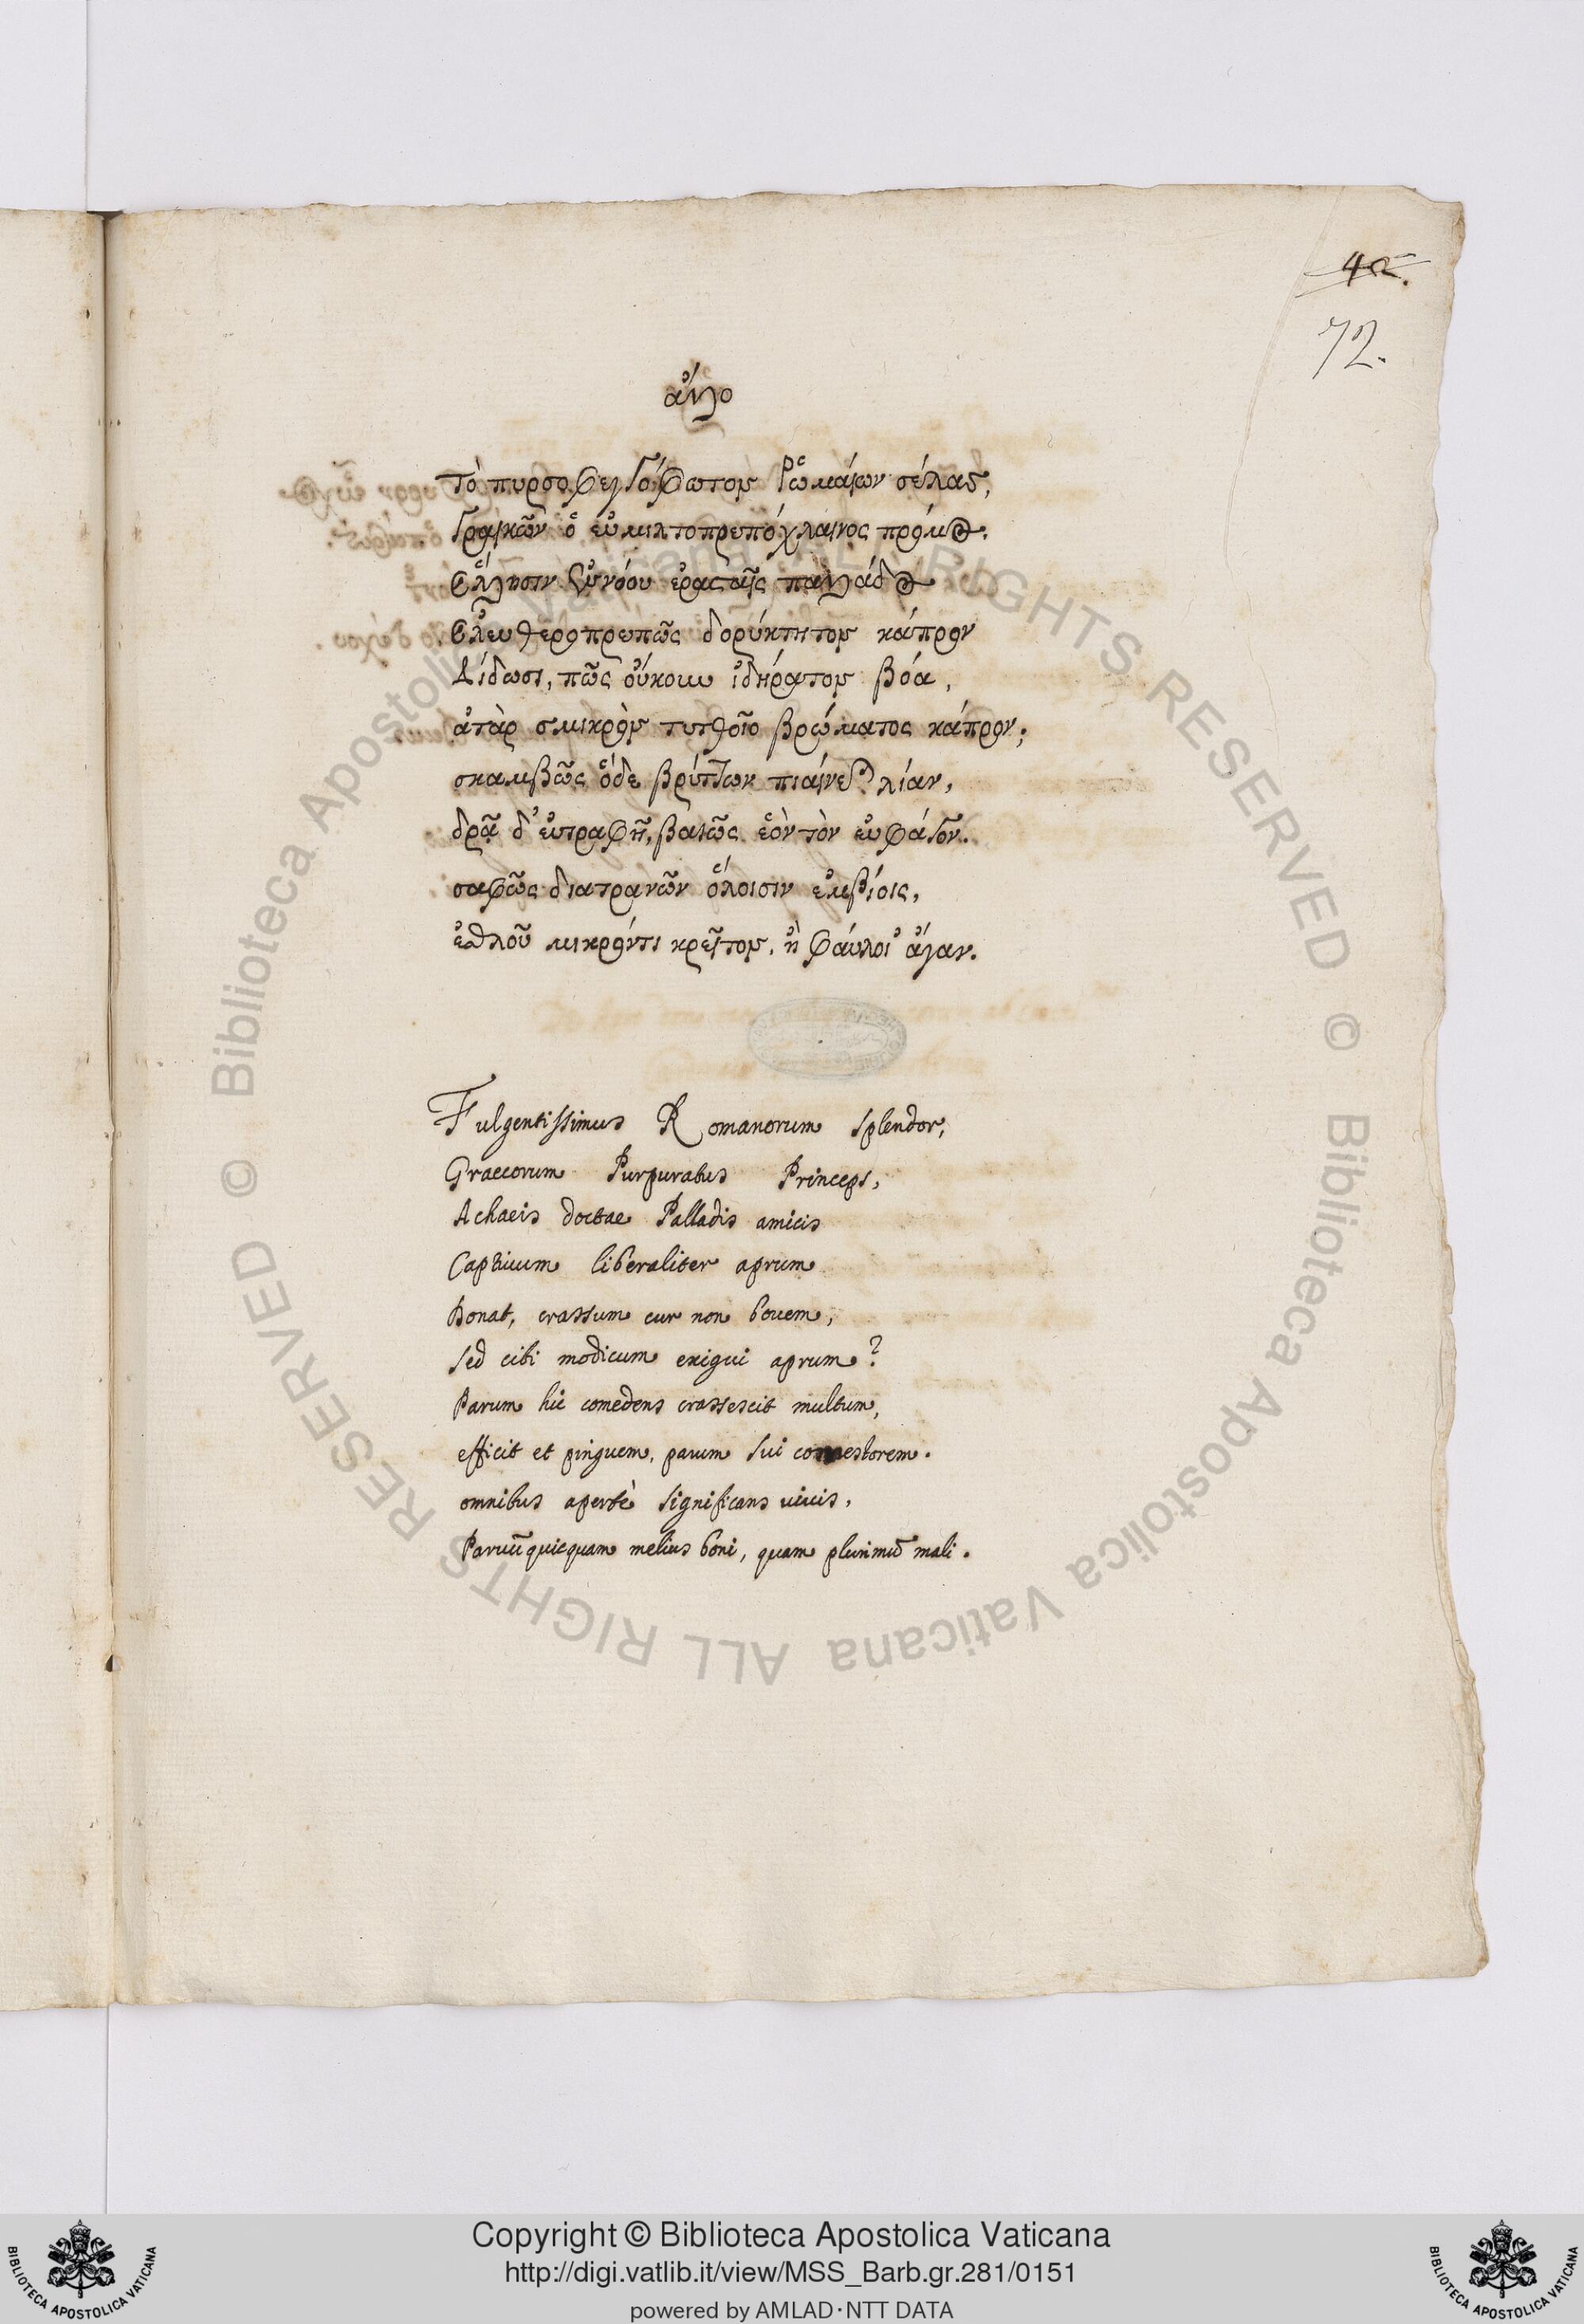 42.
72.
ἄλλο
Τὸ πυρσοφεγγόφωτον Ῥωμαίων σέλας,
Γραικῶν ὁ εὐμιλτοπρεπόχλαινος πρόμος.
Ἕλλησιν εὐνόου ἐρασταῖς παλλάδος
Ἐλευθεροπρεπῶς δορύκτητον κάπρον
Δίδωσι, πῶς οὔκουν ἰδήρατον βόα,
ἀτὰρ σμικρὸν τυτθοῖο βρώματος κάπρον;
σκαμβῶς ὅδε βρύττων πιαίνεται λίαν,
δρᾷ δ' εὐτραφῆ, βαιῶς ἑὸν τὸν εὐφάγον.
σαφῶς διατρανῶν ὅλοισιν ἐμβίοις,
ἐσθλοῦ μικρόν τι κρεῖτον, ἢ φαύλοι' ἄγαν.
Fulgentissimus Romanorum splendor,
Graecorum Purpuratus Princeps,
Achaeis doctae Palladis amicis
Captiuum liberaliter aprum
Donat, crassum cur non bouem,
Sed cibi modicum exigui aprum?
Parum hic comedens crassescit multum,
efficit et pinguem, parum sui comestorem.
omnibus apertè significans uiuis,
Paruũ quicquam melius boni, quam plurimũ mali.
© Biblioteca Apostolica Vaticana ALL RIGHTS RESERVED © Biblioteca Apostolica Vaticana ALL RIGHTS RESERVED
Copyright © Biblioteca Apostolica Vaticana
http://digi.vatlib.it/view/MSS_Barb.gr.281/0151
powered by AMLAD·NTT DATA
BIBLIOTECA APOSTOLICA VATICANA
BIBLIOTECA APOSTOLICA VATICANA